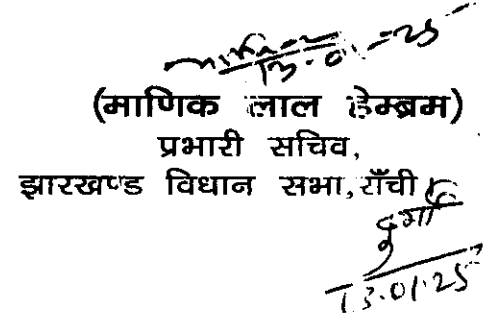 13-01-25
(माणिक लाल हेम्ब्रम)
प्रभारी सचिव,
झारखण्ड विधान सभा, राँची।
13.01.25